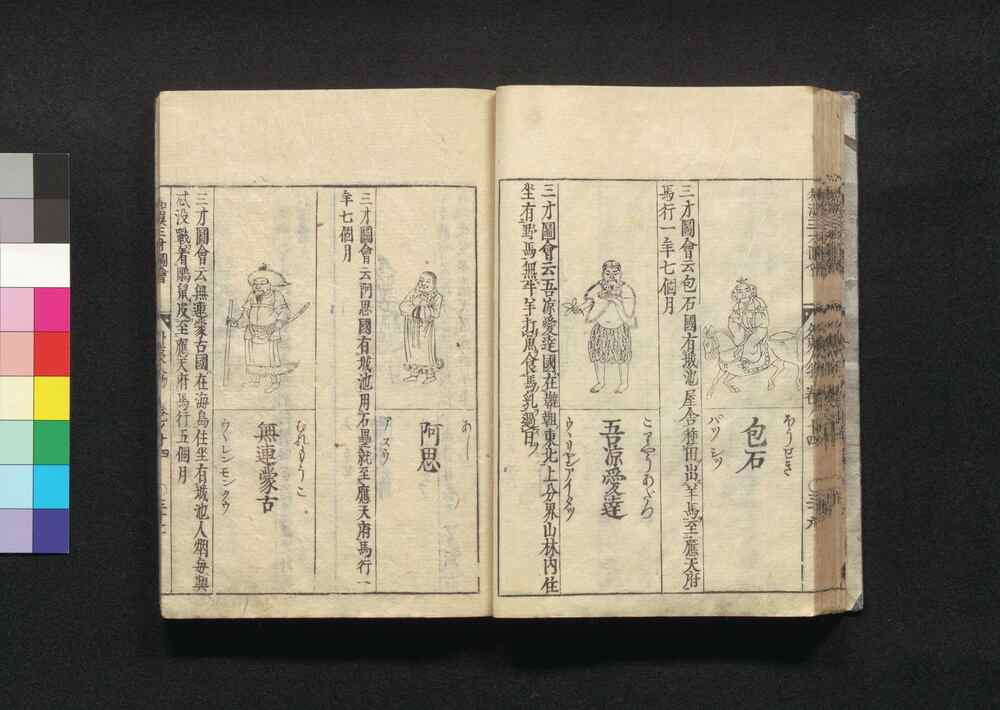 包石
はうせき
パ○シツ
三才圖會云包石國有城池屋舍種田出羊馬至應天府
馬行一年七個月
吾涼愛達
ごりやうあいだつ
三才圖會云吾涼愛達國在韃靼東北上分界山林內住
坐有野馬無牛羊打馬食馬乳過日
阿思
あし
アスウ
三才圖會云阿思國有城池用石壘就至應天府馬行一
年七個月
無連蒙古
むれもうこ
ウウレンモンクウ
三才圖會云無連蒙古國在海島住坐有城池人烟每與
忒没戰着鵰鼠皮至應天府馬行五個月